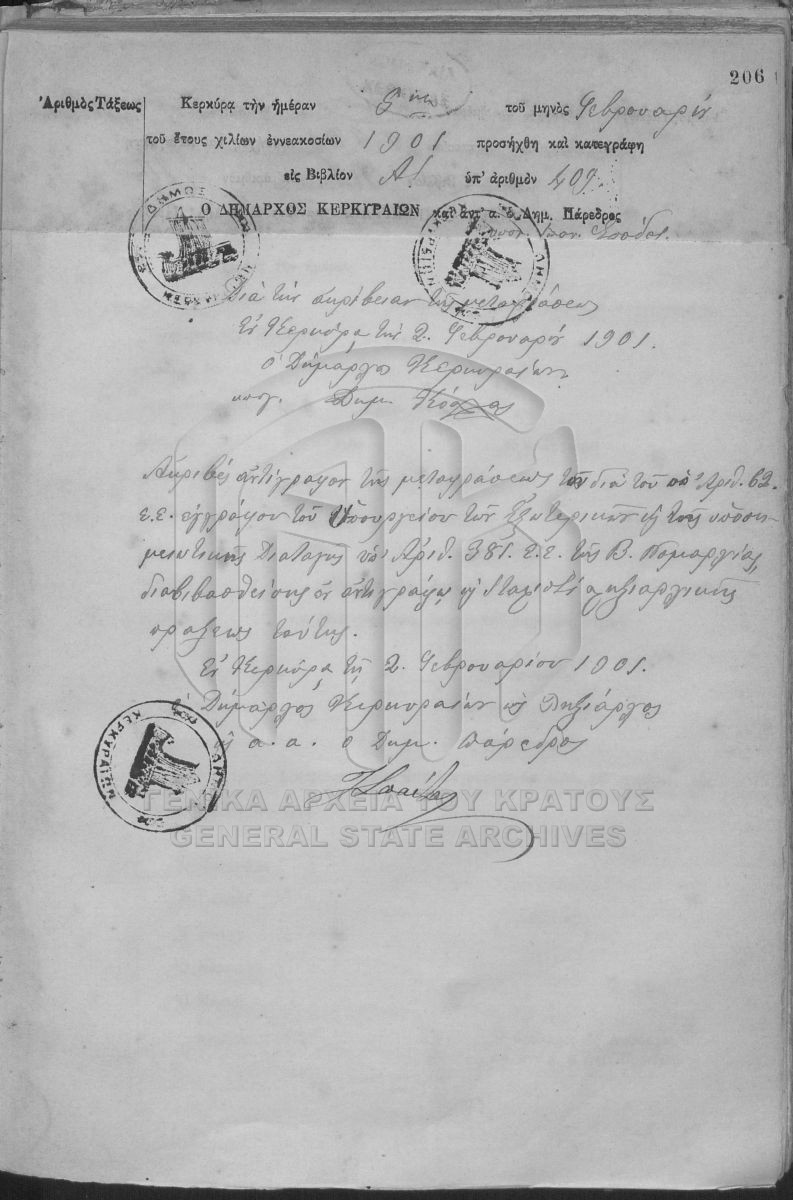 206
Ἀριθμὸς Τάξεως
Κερκύρᾳ τὴν ἡμέραν τοῦ μηνὸς Φεβρουαρίου
τοῦ ἔτους χιλίων ἐννεακοσίων 1901 προσήχθη καὶ κατεγράφη
εἰς Βιβλίον Α/ ὑπ' ἀριθμὸν 409.
Ο ΔΗΜΑΡΧΟΣ ΚΕΡΚΥΡΑΙΩΝ καὶ ἀντ' α. ὁ Δημ. Πάρεδρος
Διὰ τὴν ἀκρίβειαν τῆς μεταφράσεως
Ἐν Κερκύρᾳ τῇ 2 Φεβρουαρίου 1901.
ὁ Δήμαρχος Κερκυραίων
υπογ. Δημ. Κόλλας
Ἀκριβές ἀντίγραφον τῆς μεταφράσεως διὰ τοῦ ὑπ' Ἀριθ. 62
Ε.Ε. ἐγγράφου τοῦ Ὑπουργείου τῶν Ἐξωτερικῶν καὶ τῆς ὑποση
μειωτικῆς Διαταγῆς ὑπ' Ἀριθ. 381 Ε.Ε. τῆς Β. Νομαρχίας,
διαβιβασθείσης ἐν ἀντιγράφῳ ληξιαρχικῆς
πράξεως ταύτης.
Ἐν Κερκύρᾳ τῇ 2 Φεβρουαρίου 1901.
ὁ Δήμαρχος Κερκυραίων ὡς Ληξίαρχος
καὶ α. α. ὁ Δημ. πάρεδρος
ΓΕΝΙΚΑ ΑΡΧΕΙΑ ΤΟΥ ΚΡΑΤΟΥΣ
GENERAL STATE ARCHIVES